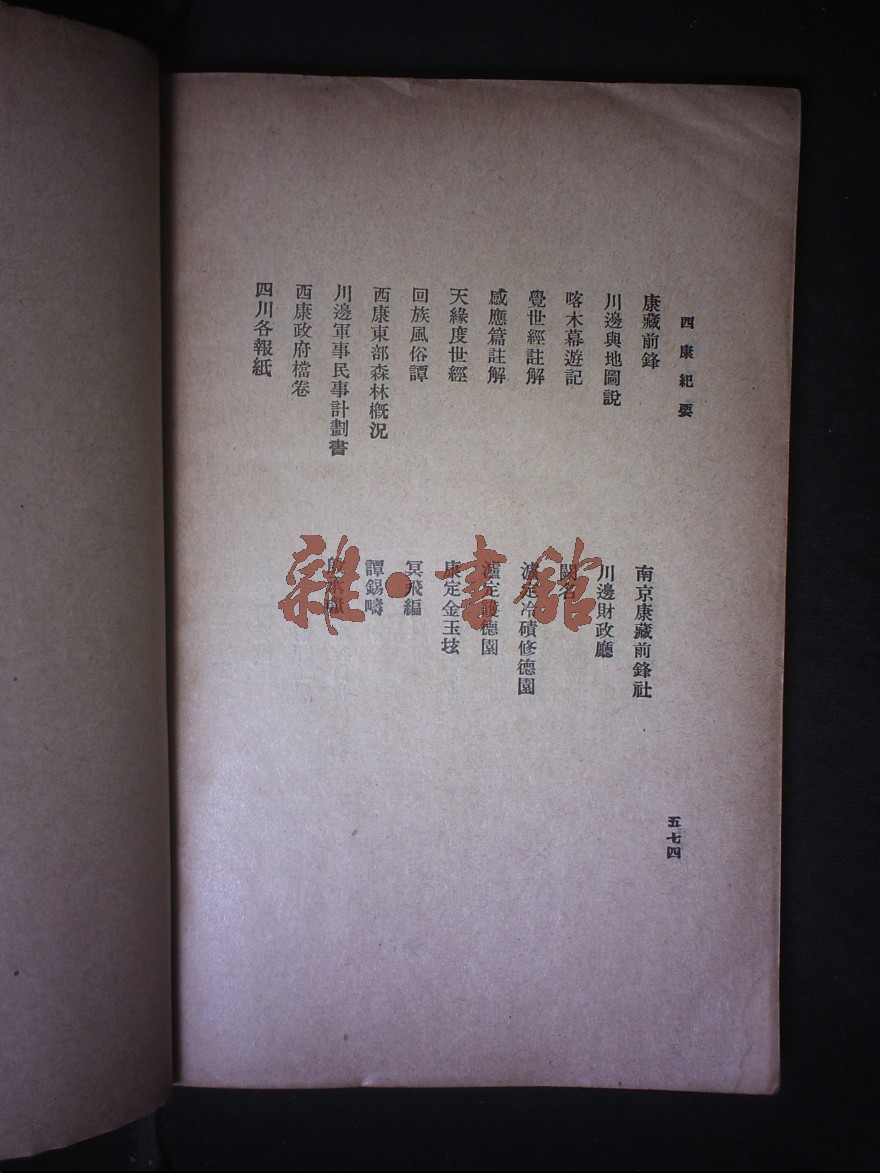 西康紀要
康藏前鋒 南京康藏前鋒社
川邊輿地圖說 川邊財政廳
喀木幕遊記 闕名
覺世經註解 定冷磧修德園
感應篇註解 瀘定德園
天緣度世經 康定金玉垓
回族風俗譚 冥飛編
西康東部森林概況 譚錫疇
川邊軍事民事計劃書
西康政府檔卷
四川各報紙
五七四
雜·書館